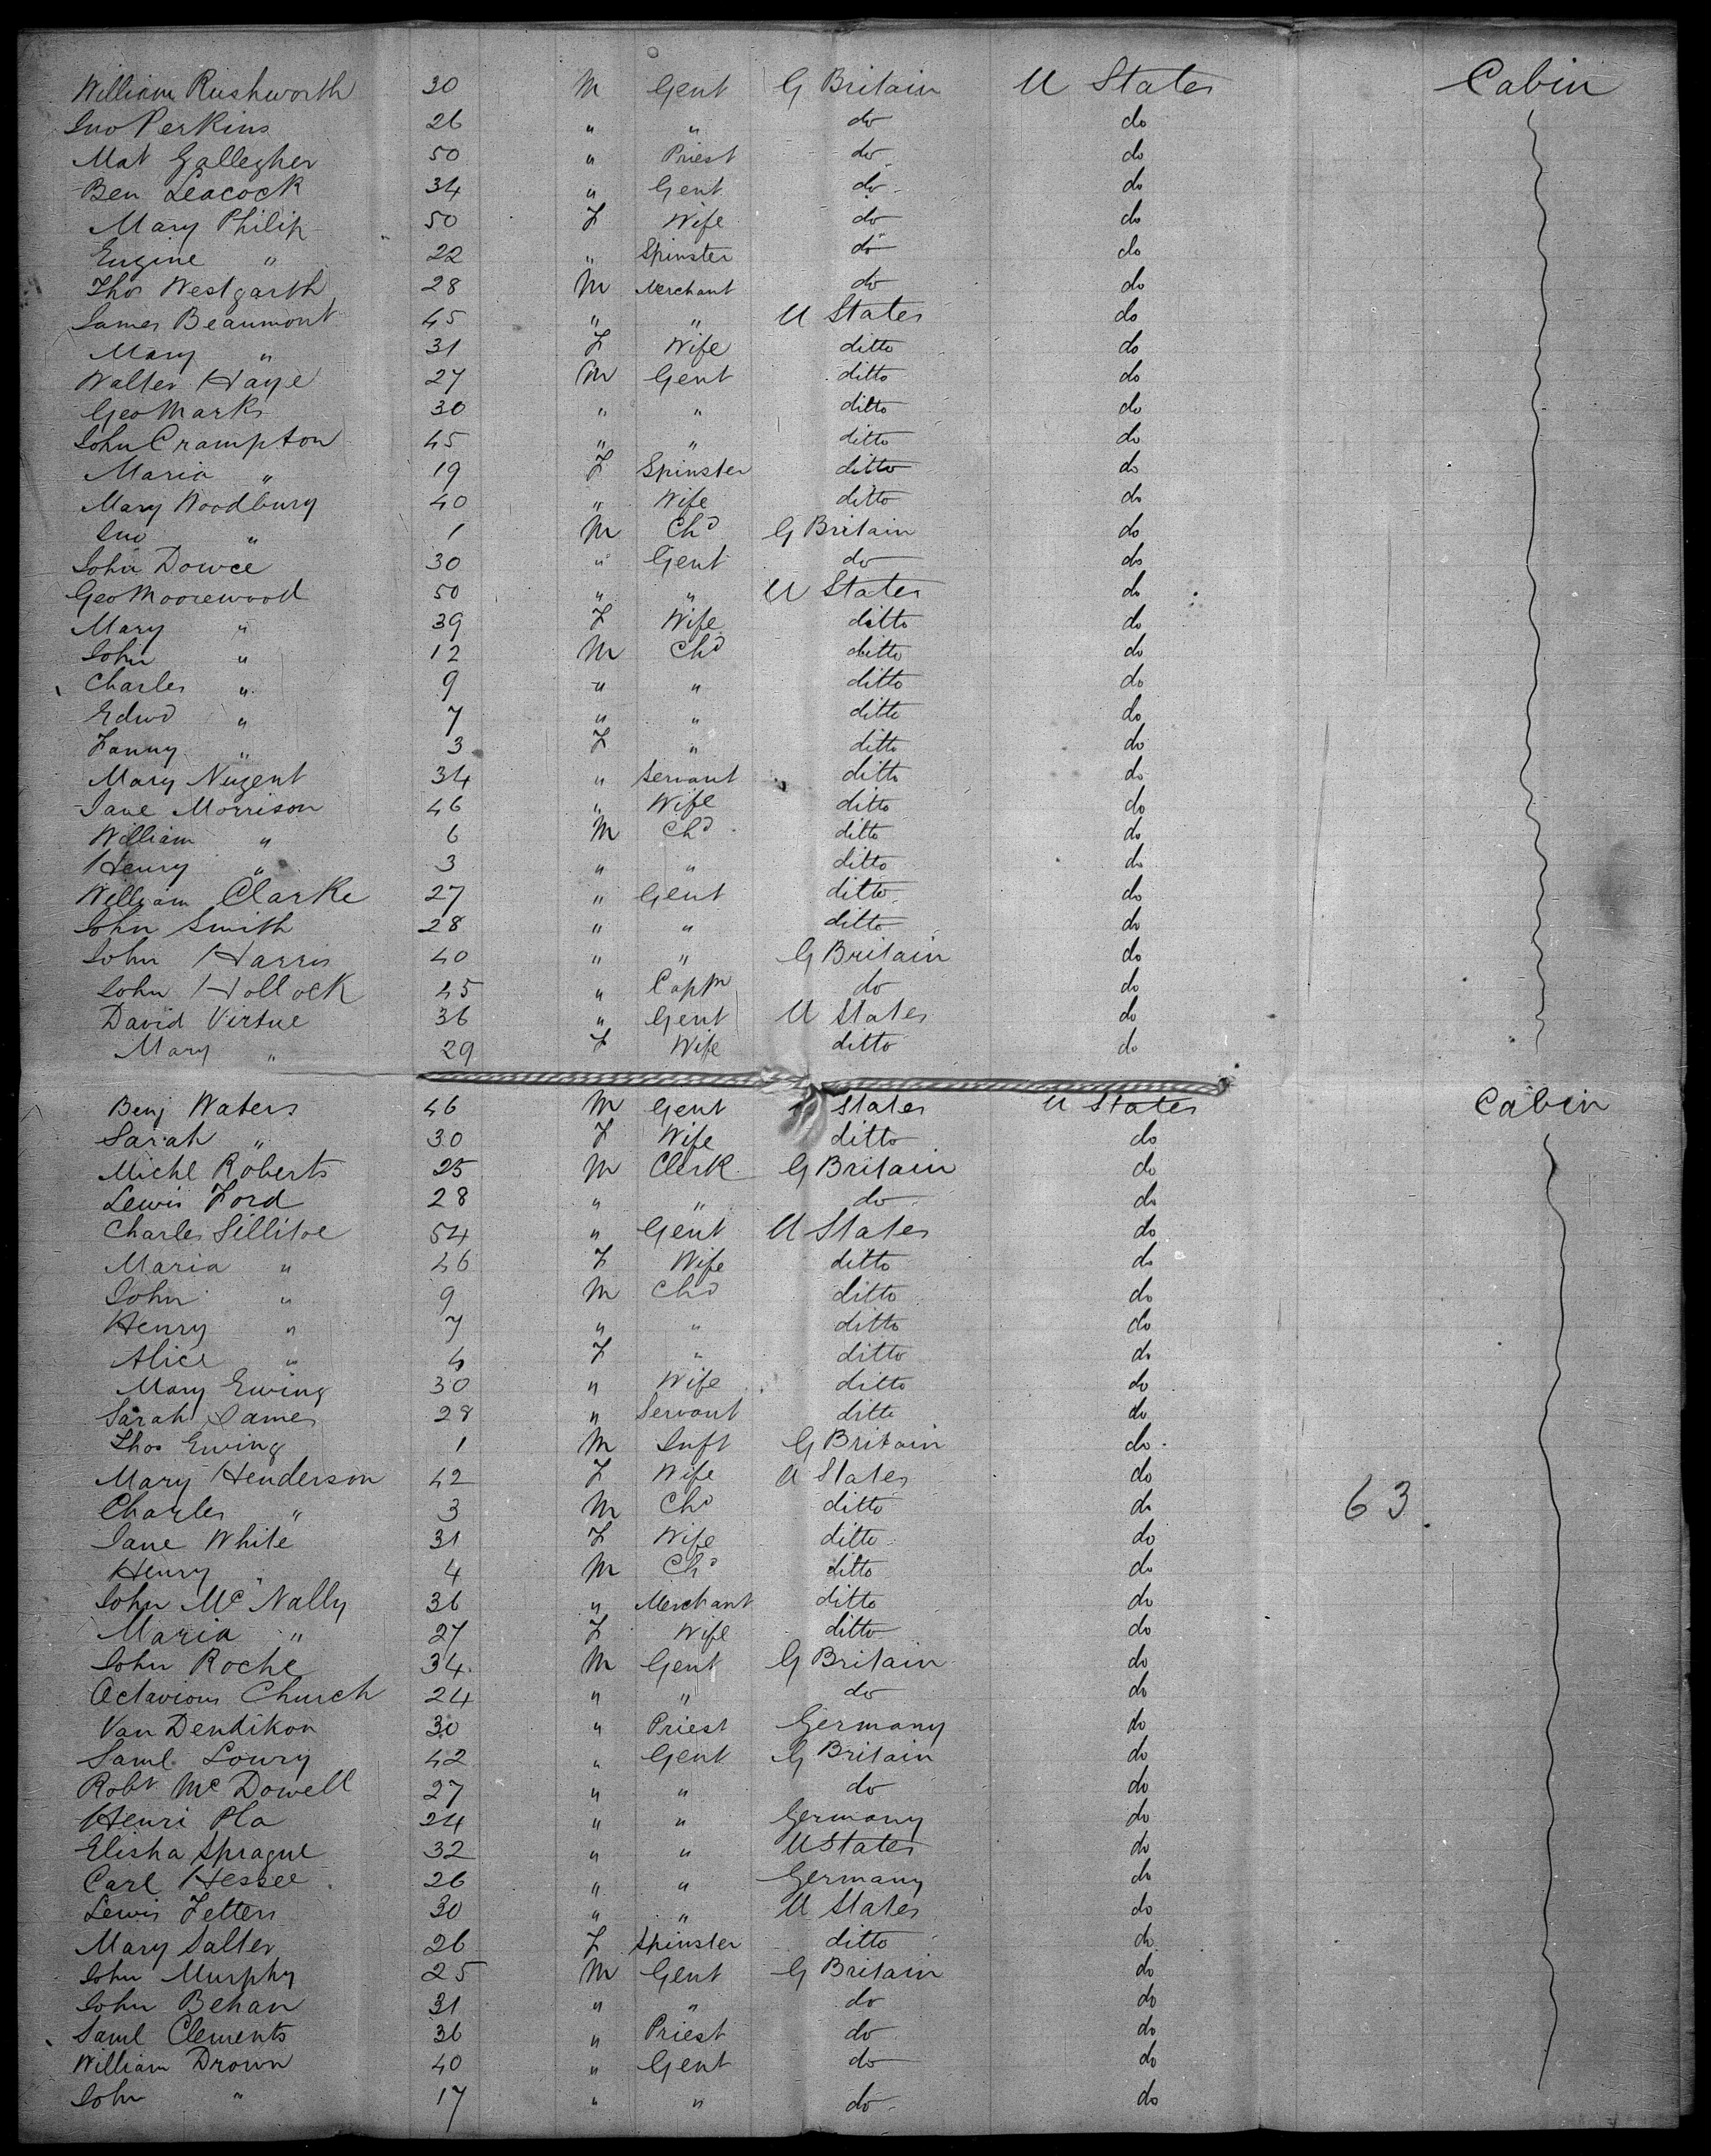 William Rushworth 30 M Gent G Britain U States Cabin
Jno Perkins 26 " " do do
Mat Gallegher 50 " Priest do do
Ben Leacock 34 " Gent do do
Mary Philip 50 F Wife do do
Eugine " 22 " Spinster do do
Thos Westgarth 28 M Merchant do do
James Beaumont 45 " " U States do
Mary " 31 F Wife ditto do
Walter Haye 27 M Gent ditto do
Geo Marks 30 " " ditto do
John Crampton 45 " " ditto do
Maria " 19 F Spinster ditto do
Mary Woodbury 40 " Wife ditto do
Jno " 1 M Chd G Britain do
John Dowce 30 " Gent do do
Geo Moorewood 50 " " U States do
Mary " 39 F Wife ditto do
John " 12 M Chd ditto do
Charles " 9 " " ditto do
Edwd " 7 " " ditto do
Fanny " 3 F " ditto do
Mary Nugent 34 " Servant ditto do
Jane Morrison 46 " Wife ditto do
William " 6 M Chd ditto do
Henry " 3 " " ditto do
William Clarke 27 " Gent ditto do
John Smith 28 " " ditto do
John Harris 40 " " G Britain do
John Hollock 45 " Captn do do
David Virtue 36 " Gent U States do
Mary " 29 F Wife ditto do
Benj Waters 46 M Gent U States U States Cabin
Sarah " 30 F Wife ditto do
Michl Roberts 25 M Clerk G Britain do
Lewis Ford 28 " " do do
Charles Sillitoe 54 " Gent U States do
Maria " 46 F Wife ditto do
John " 9 M Chd ditto do
Henry " 7 " " ditto do
Alice " F " ditto do
Mary Ewing 30 " Wife ditto do
Sarah James 28 " Servant ditto do
Thos Ewing 1 M Inft G Britain do
Mary Henderson 42 F Wife U States do
Charles " 3 M Chd ditto do 63
Jane White 31 F Wife ditto do
Henry " 4 M Chd ditto do
John Mc Nally 36 " Merchant ditto do
Maria " 27 F Wife ditto do
John Roche 34 M Gent G Britain do
Octavious Church 24 " " do do
Van Dendikon 30 " Priest Germany do
Saml Lowry 42 " Gent G Britain do
Robt Mc Dowell 27 " " do do
Henri Pla 24 " " Germany do
Elisha Sprague 32 " " U States do
Carl Hessee 26 " " Germany do
Lewis Fetters 30 " " U States do
Mary Salter 26 F Spinster ditto do
John Murphy 25 M Gent G Britain do
John Behan 31 " " do do
Saml Clements 36 " Priest do do
William Drown 40 " Gent do do
John " 17 " " do do